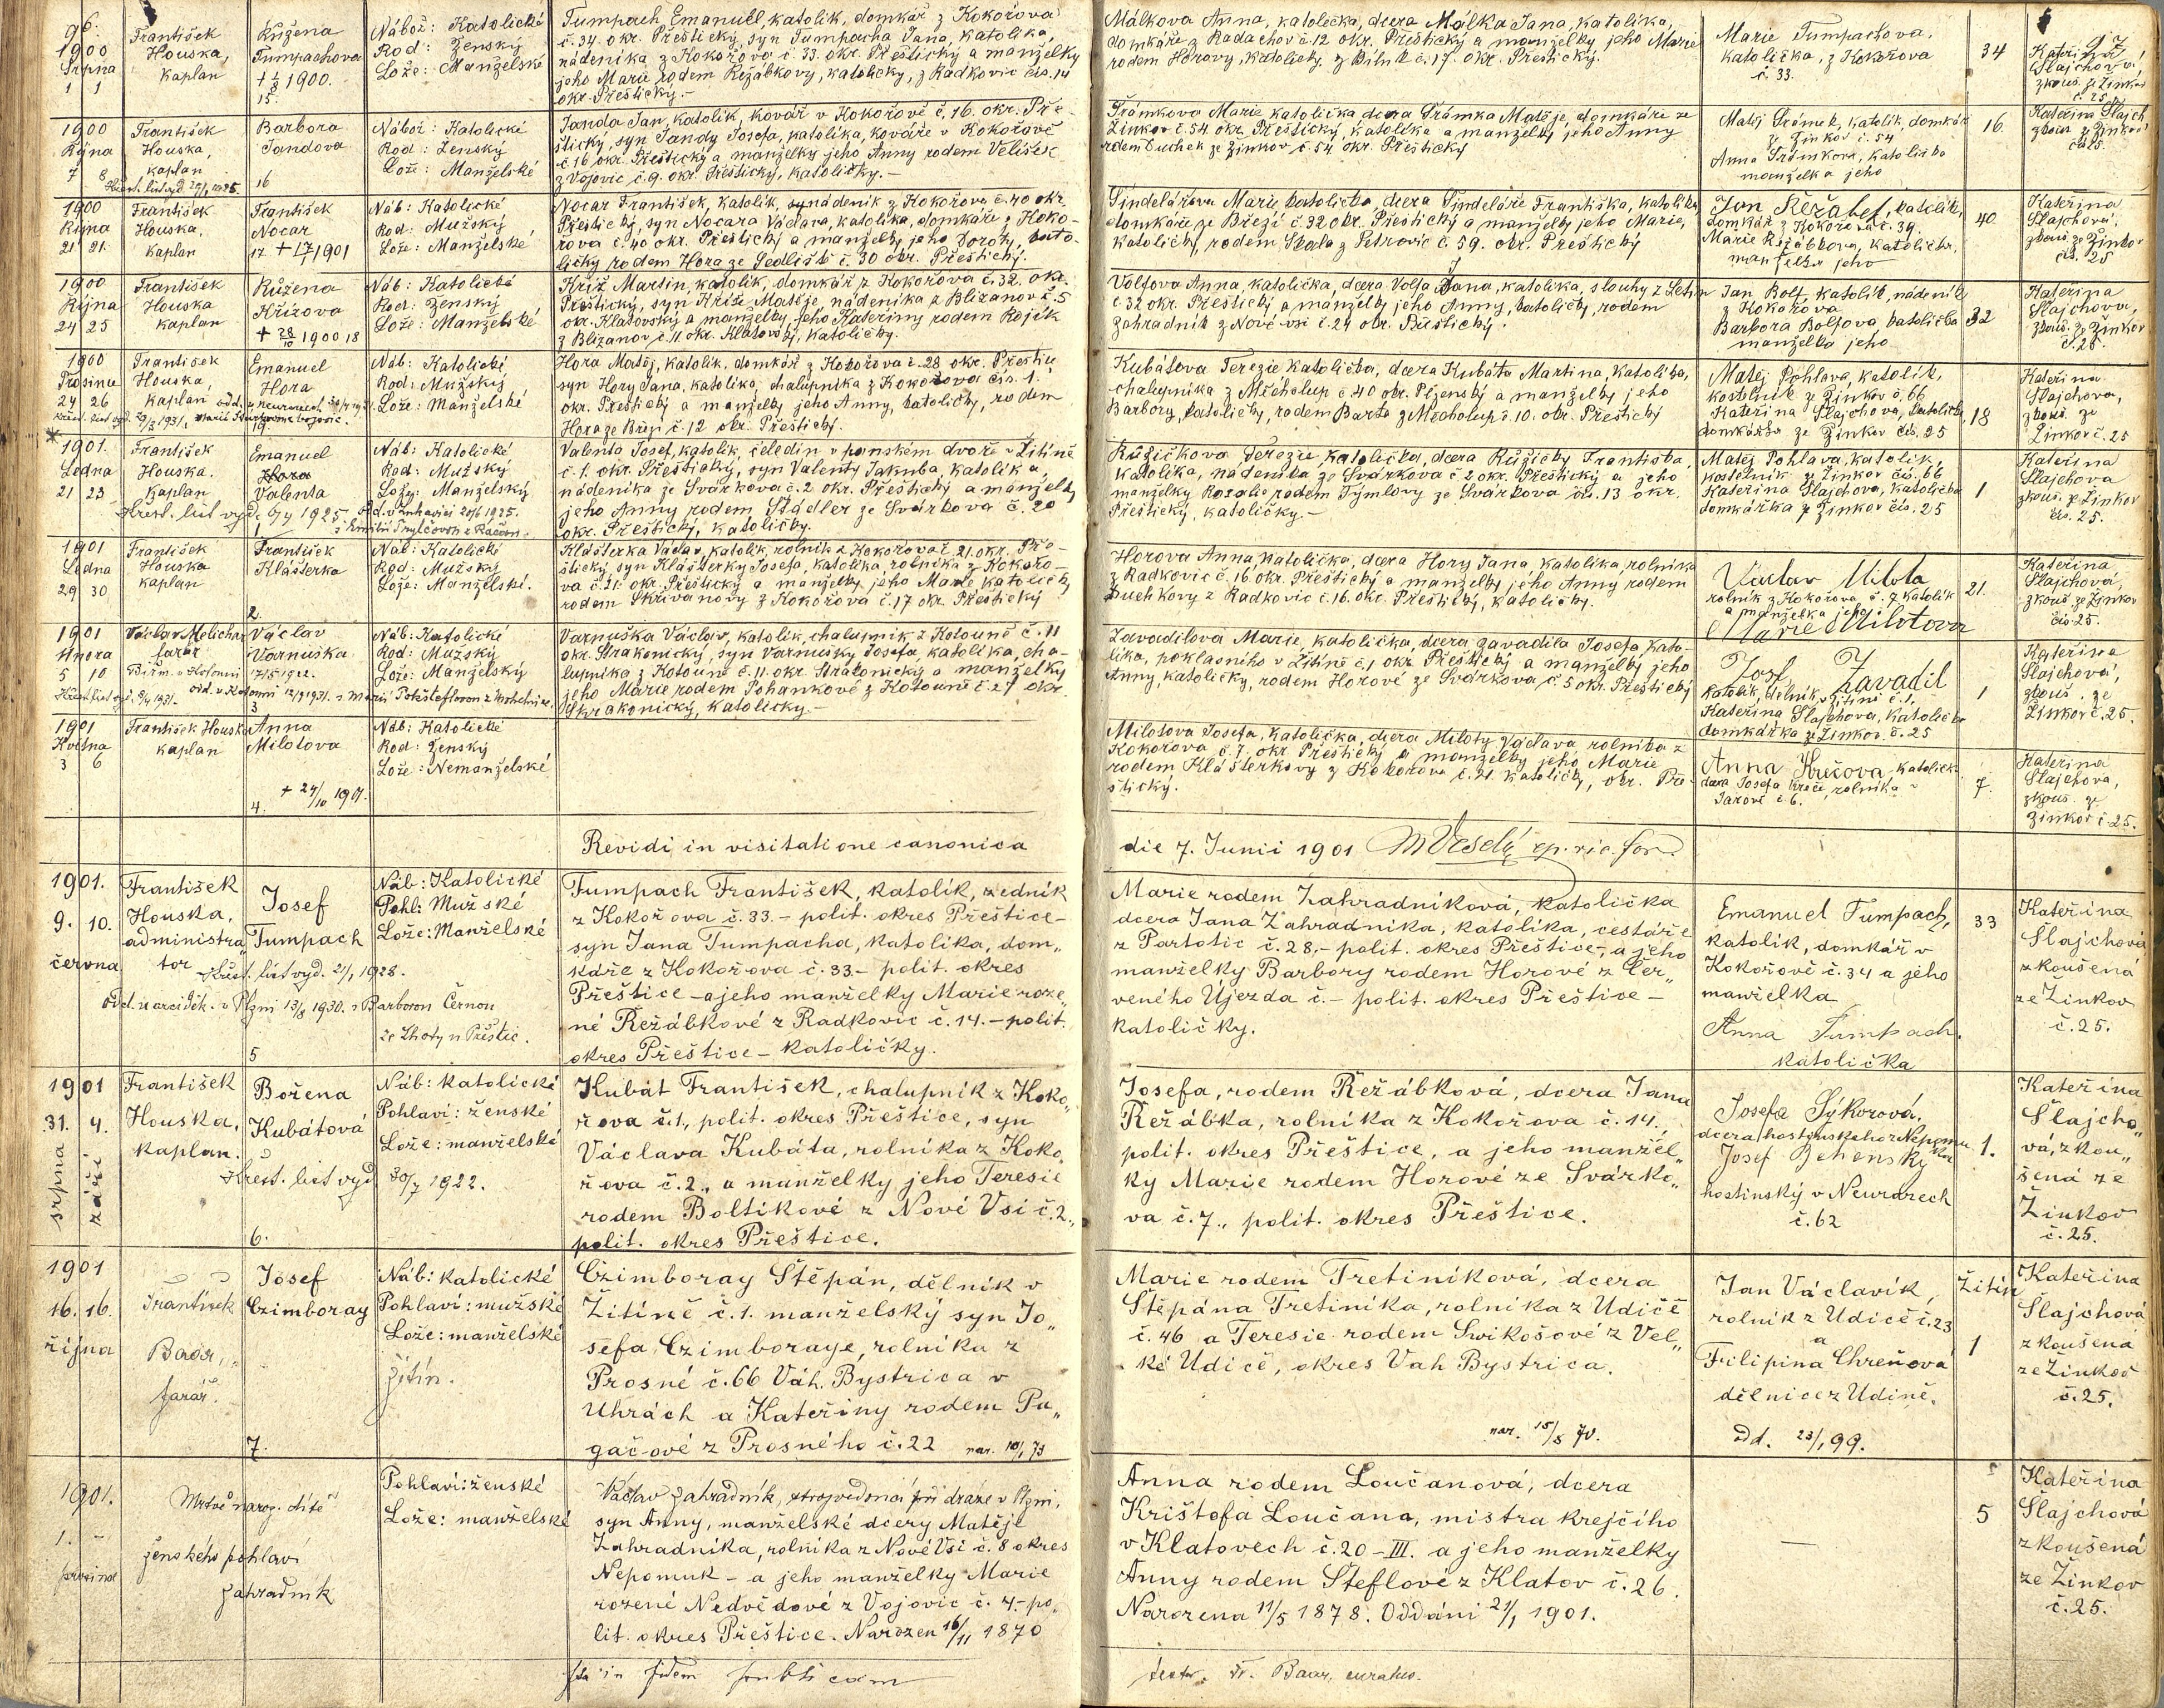 96.
1900
Srpna
1 1
František
Houska,
kaplan
Růžena
Tumpachova
† 1/8 1900.
15.
Nábož: Katolické
Rod: Ženský
Lože: Manželské
Tumpach Emanuel, katolík, domkář z Kokořova
č. 34. okr. Přeštický, syn Tumpacha Jana, katolíka,
nádeníka z Kokořova č. 33. okr. Přeštický a manželky
jeho Marie rodem Režábkovy, katoličky, z Radkovic čís. 14
okr. Přeštický.-
Málkova Anna, katolička, dcera Málka Jana, katolíka,
domkáře z Radachov č 12 okr. Přeštický a manželky jeho Marie
rodem Horovy, katoličky z č. 17. okr. Přeštický.
Marie Tumpachova,
katolička, z Kokořova
č. 33.
34
97
Kateřina
Slajchova,
zkouš. ze Žinkov
č. 25.
1900
Října
7 8
František
Houska,
kaplan
Barbora
Jandova
16
Nábož: Katolické
Rod: Ženský
Lože: Manželské
Janda Jan, katolík, kovář v Kokořově č. 16. okr. Pře-
štický, syn Jandy Josefa, katolíka, kováře v Kokořově
č. 16 okr. Přeštický a manželky jeho Anny rodem Velíšek
z Vojovic č. 9. okr. Přeštický, katoličky.-
Trámkova Marie katolička dcera Trámka Matěje, domkáře ze
Žinkov č. 54. okr. Přeštický, katolíka a manželky jeho Anny
rodem Duchek ze Žinkov č. 54 okr. Přeštický
Matěj Trámek, katolík, domkář
ze Žinkov č. 54
Anna Trámkova, katolička
manželka jeho
16.
Kateřina Slajch
zkouš. z Žinkov
čís. 25.
1900
Října
21 21.
František
Houska,
kaplan
František
Nocar
17 † 1901
Náb: Katolické
Rod: Mužský
Lože: Manželské
Nocar František, katolík, nádeník z Kokořova č. 40 okr.
Přeštický, syn Nocara Václava, katolíka, domkáře z Koko-
řova č. 40 okr. Přeštický a manželky jeho Doroty, kato-
ličky rodem Hora ze Sedliště č. 30 okr. Přeštický.
Šindelářova Marie katolička, dcera Šindeláře Františka, katolíka
domkáře ze Březí č. 32 okr. Přeštický a manželky jeho Marie,
katoličky, rodem Skala z Petrovic č. 59. okr. Přeštický
Jan Řežábek, katolík,
domkář z Kokořova č. 39.
Marie Režábkova, katolička,
manželka jeho
40.
Kateřina
Slajchova,
zkouš. ze Žinkov
čís. 25
1900
Října
24 25
František
Houska
kaplan
Růžena
Křížova
† 28/10 1900 18
Náb: Katolické
Rod: Ženský
Lože: Manželské
Kříž Martin, katolík, domkář z Kokořova č. 32. okr.
Přeštický, syn Kříže Matěje, nádeníka z Bližanov č. 5
okr. Klatovský a manželky jeho Kateřiny rodem Rojík
z Bližanov č. 11 okr. Klatovský, katoličky.
Volfova Anna, katolička, dcera Volfa Jana, katolíka, slouhy z
č 32 okr. Přeštický a manželky jeho Anny, katoličky, rodem
Zahradník z Nové vsi č. 24 okr. Přeštický.
Jan Bolf, katolík, nádeník
z Kokořova
Barbora Bolfova, katolička
manželka jeho
32
Kateřina
Slajchova,
zkouš. ze Žinkov
č. 25.
1900
Prosince
24 26
František
Houska,
kaplan
Emanuel
Hora
Náb: Katolické
Rod: Mužský
Lože: Manželské
Hora Matěj, katolík, domkář z Kokořova č. 28 okr. Přeštic.
syn Hory Jana, katolíka, chalupníka z Kokořova čís. 1.
okr. Přeštický a manželky jeho Anny, katoličky, rodem
Hora ze Březí č. 12 okr. Přeštický.
Kubátova Terezie katolička, dcera Kubáta Martina, katolíka,
chalupníka z Měcholup č. 40 okr. Plzenský a manželky jeho
Barbory, katoličky, rodem Barta z Mecholup č 10. okr. Přeštický
Matěj Pohlava, katolík,
kostelník ze Žinkov č. 66
Kateřina Slajchova, katolička
domkářka ze Žinkov čís. 25
18
Kateřina
Slajchova,
zkouš. ze
Žinkov č. 25
1901.
Ledna
21 23
František
Houska.
kaplan
Emanuel
Hora
Valenta
Křest. list vyd. 1925.
Náb: Katolické
Rod: Mužský
Lože: Manželský
Valenta Josef, katolík, čeledín v panském dvoře v Žitíně
č. 1. okr. Přeštický, syn Valenty Jakuba, katolíka,
nádeníka ze Svárkova č. 2 okr. Přeštický a manželky
jeho Anny rodem Städler ze Svárkova č. 20
okr. Přeštický, katoličky.
Růžičkova Terezie katolička, dcera Růžičky Františka,
katolíka, nádeníka ze Svárkova č. 2 okr. Přeštický a jeho
manželky Rozalie rodem Týmlovy ze Svárkova čís. 13 okr.
Přeštický, katoličky.-
Matěj Pohlava, katolík,
kostelník ze Žinkov čís. 66
Kateřina Slajchova, katolička
domkářka z Žinkov čís. 25
1
Kateřina
Slajchova
zkouš. ze Žinkov
čís. 25.
1901
Ledna
29 30
František
Houska
kaplan
František
Klášterka
2.
Náb: Katolické
Rod: Mužský
Lože: Manželské.
Klášterka Václav, katolík, rolník z Kokořova č. 21. okr. Pře-
štický, syn Klášterky Josefa, katolíka, rolníka z Kokořo-
va č. 21. okr. Přeštický a manželky jeho Marie katoličky
rodem Skřivanovy z Kokořova č. 17 okr. Přeštický
Horova Anna, katolička, dcera Hory Jana, katolíka, rolníka
z Radkovic č. 16. okr. Přeštický a manželky jeho Anny rodem
Duchkovy z Radkovic č. 16. okr. Přeštický, katoličky.
Václav Milota
rolník z Kokořova č. 7. katolík
a manželka jeho
Marie Milotova
21.
Kateřina
Slajchová,
zkouš. ze Žinkov
čís. 25.
1901
Února
5 10
Václav Melichar
farář
Václav
Varnuška
3
Náb: Katolické
Rod: Mužský
Lože: Manželský
Varnuška Václav, katolík, chalupník z Kotouně č. 11
okr. Strakonický, syn Varnušky Josefa, katolíka, cha-
lupníka z Kotouně č. 11. okr. Strakonický a manželky
jeho Marie rodem Johankové z Kotouně č. 27 okr.
Strakonický, katoličky.-
Zavadilova Marie, katolička, dcera Zavadila Josefa, kato-
líka, poklasního v Žitíně č. 1 okr. Přeštický a manželky jeho
Anny, katoličky, rodem Horové ze Svárkova č. 5 okr. Přeštický
Josf. Zavadil
katolík, dělník, v Žitíně č. 1.
Kateřina Slajchova, katolička
domkářka ze Žinkov. č. 25
1
Kateřina
Slajchová,
zkouš. ze
Žinkov č. 25.
1901
Května
3 6
František Houska
kaplan
Anna
Milotova
4. † 24/10 1901.
Náb: Katolické
Rod: Ženský
Lože: Nemanželské
Milotova Josefa, katolička, dcera Miloty Václava rolníka z
Kokořova č. 7. okr Přeštický a manželky jeho Marie
rodem Klášterkovy z Kokořova č. 21. katoličky, okr. Pře-
štický.
Anna Krűsova, katolick.
dcera Josefa rolníka
č. 6.
7.
Kateřina
Slajchova,
zkouš. ze
Žinkov č. 25.
Revidi in visitatione canonica
die 7. Junii 1901 M Veselý ep. vic. for.
1901.
9. 10.
června
František
Houska,
administra„
tor
Josef
Tumpach
Křest. list vyd. 21/1 1928.
Odd. u arciděk. v Plzni 13/8 1930. s Barborou Černou
ze Lhoty u Přeštic.
5
Náb: Katolické
Pohl: Mužské
Lože: Manželské
Tumpach František, katolík, zedník
z Kokořova č. 33.- polit. okres Přeštice-
syn Jana Tumpacha, katolíka, dom„
káře z Kokořova č. 33.- polit. okres
Přeštice-a jeho manželky Marie roze„
né Řežábkové z Radkovic č. 14.-polit.
okres Přeštice-katoličky.
Marie rodem Zahradníková, katolička
dcera Jana Zahradníka, katolíka, cestáře
z Partotic č. 28,- polit. okres Přeštice-, a jeho
manželky Barbory rodem Horové z Čer„
veného Újezda č.- polit. okres Přeštice-
katoličky.
Emanuel Tumpach,
katolík, domkář v
Kokořově č. 34 a jeho
manželka
Anna Tumpach.
katolička
33
Kateřina
Slajchová
zkoušená
ze Žinkov
č. 25.
1901
31. 4.
srpna
září
František
Houska,
kaplan.
Božena
Kubátová
Křest. list vyd 30/7 1922.
6.
Náb: katolické
Pohlaví: ženské
Lože: manželské
Kubát František, chalupník z Koko„
řova č. 1., polit. okres Přeštice, syn
Václava Kubáta, rolníka z Koko„
řova č. 2., a manželky jeho Teresie
rodem Boltíkové z Nové Vsi č. 2.,
polit. okres Přeštice.
Josefa, rodem Řežábková, dcera Jana
Řežábka, rolníka z Kokořova č. 14.,
polit. okres Přeštice, a jeho manžel„
ky Marie rodem Horové ze Svárko„
va č. 7., polit. okres Přeštice.
Josefa Sýkorová.
dcera hostinského z Nepomu
ka
Josef Behenský
hostinský v Neurazech
č. 62
1.
Kateřina
Šlajcho„
vá, zkou„
šená ze
Žinkov
č. 25.
1901
16. 16.
října
František
Baar,
farář.
Josef
Czimboray
7.
Náb: katolické
Pohlaví: mužské
Lože: manželské
Žitín.
Czimboray Štěpán, dělník v
Žitíně č. 1. manželský syn Jo„
sefa Czimboraye, rolníka z
Prosné č. 66 Váh. Bystrica v
Uhrách a Kateřiny rodem Pa„
gačové z Prosného č. 22 nar. 10/1 73
Marie rodem Tretiníková, dcera
Štěpána Tretinika, rolníka z Udiče
č. 46 a Teresie rodem Swikošové z Vel„
ké Udiče, okres Vah Bystrica.
nar. 15/8 70.
Jan Václavík,
rolník z Udiče č. 23
a
Filipina Chreňová
dělnice z Udině.
Od. 23/1 99.
Žitín
1
Kateřina
Šlajchová
zkoušená
ze Žinkov
č. 25.
1901.
1.
prosince
Mrtvě naroz. dítě
ženského pohlaví
Zahradník
Pohlaví: ženské
Lože: manželské
Václav Zahradník, strojvedoucí při dráze v Plzni,
syn Anny, manželské dcery Matěje
Zahradníka, rolníka z Nové Vsi č. 8 okres
Nepomuk - a jeho manželky Marie
rozené Nedvědové z Vojovic č. 4.-po„
lit. okres Přeštice. Narozen 16/11 1870
Anna rodem Loučanová, dcera
Krištofa Loučana, mistra krejčího
v Klatovech č. 20-III. a jeho manželky
Anny rodem Šteflové z Klatov č. 26.
Narozena 11/5 1878. Oddáni 21/1 1901.
—
5
Kateřina
Šlajchová
zkoušená
ze Žinkov
č. 25.
in fidem publicam
Fr. Baar, curatus.